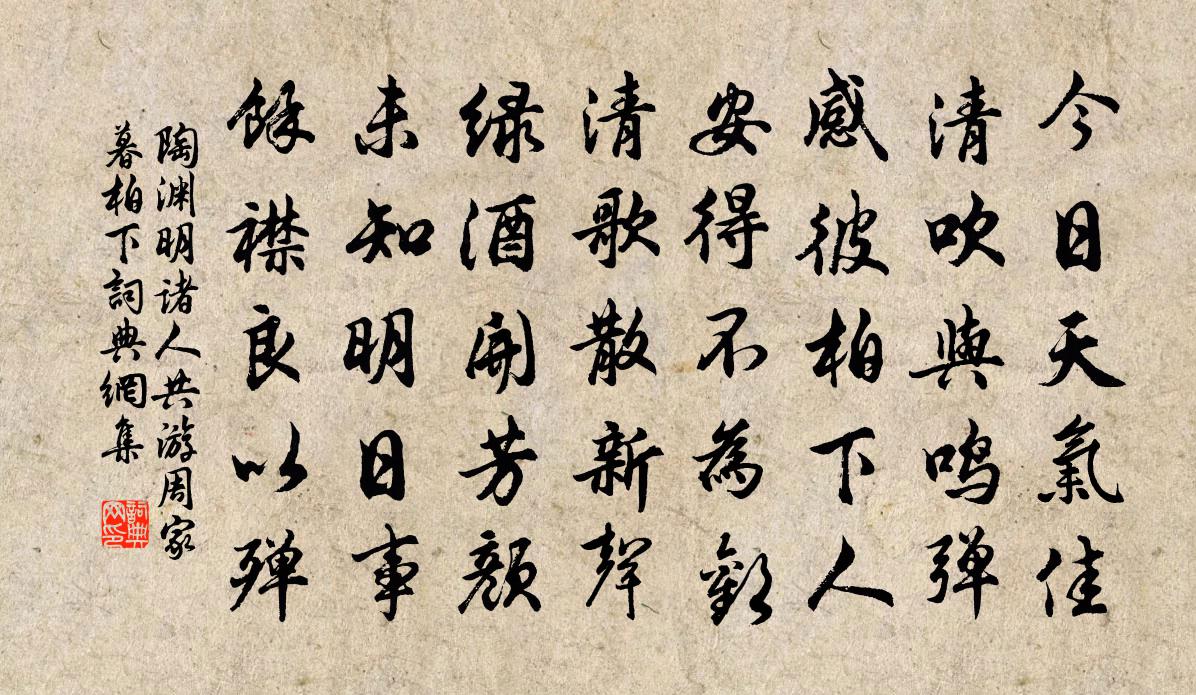 今日天氣佳
清吹與鳴弹
感彼柏下人
安得不為歡
清歌散新聲
绿酒開芳顏
未知明日事
餘襟良以殚
陶渊明诸人共游周家
暮柏下詞典網集
詞典網印